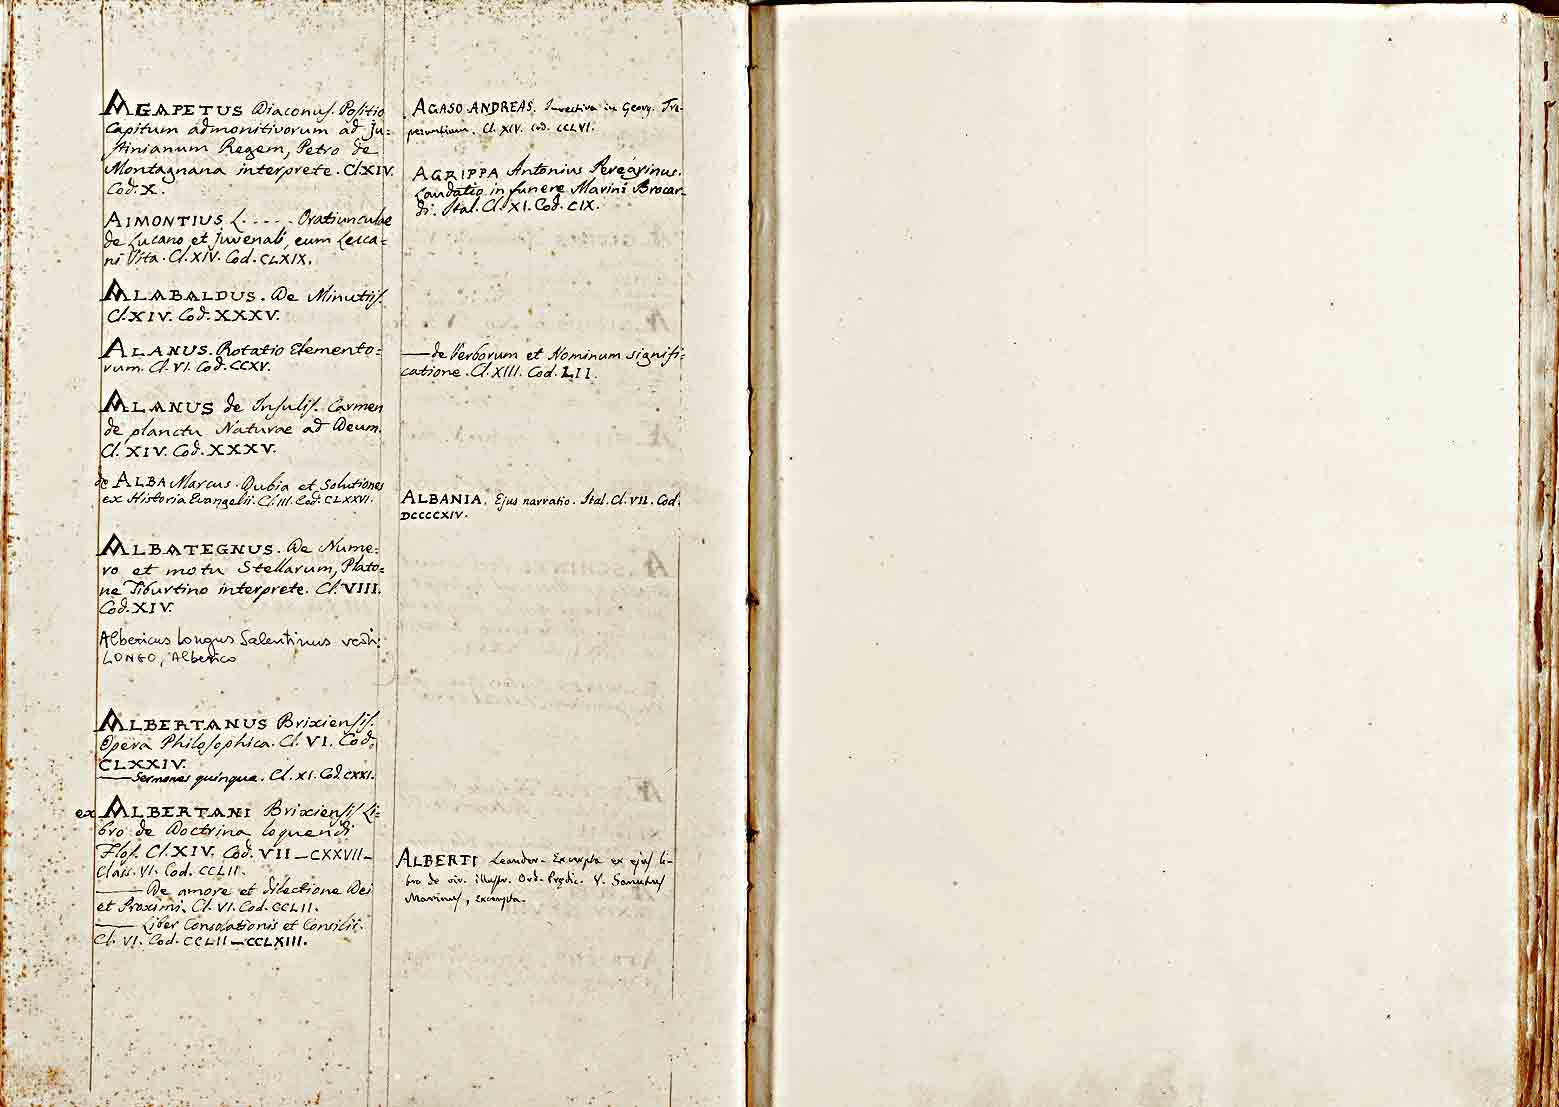 AGAPETUS Diaconus. Positio
Capitum admonitivorum ad Ju=
stinianum Regem, Petro de
Montagnana interprete. Cl.XIV.
Cod.X.
AIMONTIUS L. . . . . Oratiunculae
de Lucano et Juvenali, cum Luca=
ni Vita. Cl.XIV. Cod.CLXIX.
ALABALDUS. De Minutiis.
Cl.XIV. Cod.XXXV.
ALANUS. Rotatio Elemento=
rum. Cl.VI. Cod.CCXV.
ALANUS de Insulis. Carmen
de planctu Naturae ad Deum.
Cl.XIV. Cod.XXXV.
de ALBA Marcus. Dubia et Solutiones
ex Historia Evangelii. Cl.III. Cod.CLXXVI.
ALBATEGNUS. De Nume=
ro et motu Stellarum, Plato=
ne Tiburtino interprete. Cl.VIII.
Cod.XIV.
Albericus Longus Salentinus vedi:
LONGO, Alberico
ALBERTANUS Brixiensis.
Opera Philosophica. Cl.VI. Cod.
CLXXIV.
— Sermones quinque. Cl.XI.Cod.CXXI.
ex ALBERTANI Brixiensis Li=
bro de Doctrina loquendi
Flos. Cl.XIV. Cod.VII—CXXVII—
Class.VI. Cod.CCLII.
— De amore et dilectione Dei
et Proximi. Cl.VI.Cod.CCLII.
— Liber Consolationis et Consilii.
Cl.VI. Cod.CCLII—CCLXIII.
AGASO ANDREAS. Invectiva in Georg. Tra-
pezuntium. Cl.XIV. Cod.CCLVI.
AGRIPPA Antonius Peregrinus.
Laudatio in funere Marini Brocar-
di. Ital. Cl.XI. Cod.CIX.
— de Verborum et Nominum signifi=
catione. Cl.XIII. Cod.LII.
ALBANIA. Ejus narratio. Ital.Cl.VII.Cod.
DCCCCXIV.
ALBERTI Leander. Excerpta ex ejus li-
bro de vir. illustr. Ord. Prędic. V. Sanutus
Marinus, Excerpta.
8